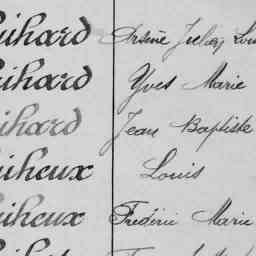 uihard Arsène Jules Lou
uihard Yves Marie
uihard Jean Baptiste
uiheux Louis
uiheux Frédéric Marie